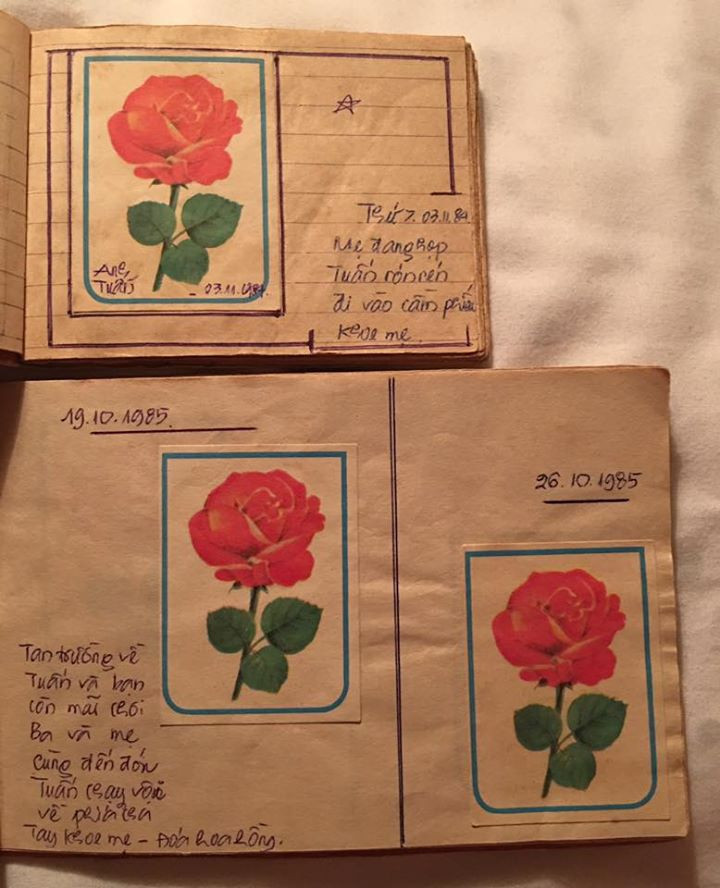 Anh
Tuấn
03.11.1984.
Thứ 7. 03.11.84.
Mẹ đang họp
Tuấn rón rén
đi vào cầm phiếu
khoe mẹ.
19.10.1985.
Tan trường về
Tuấn và bạn
còn mãi chơi
Ba và mẹ
cùng đến đón
Tuấn chạy vội
về phía
Tay khoe mẹ - Đóa hoa hồng.
26.10.1985